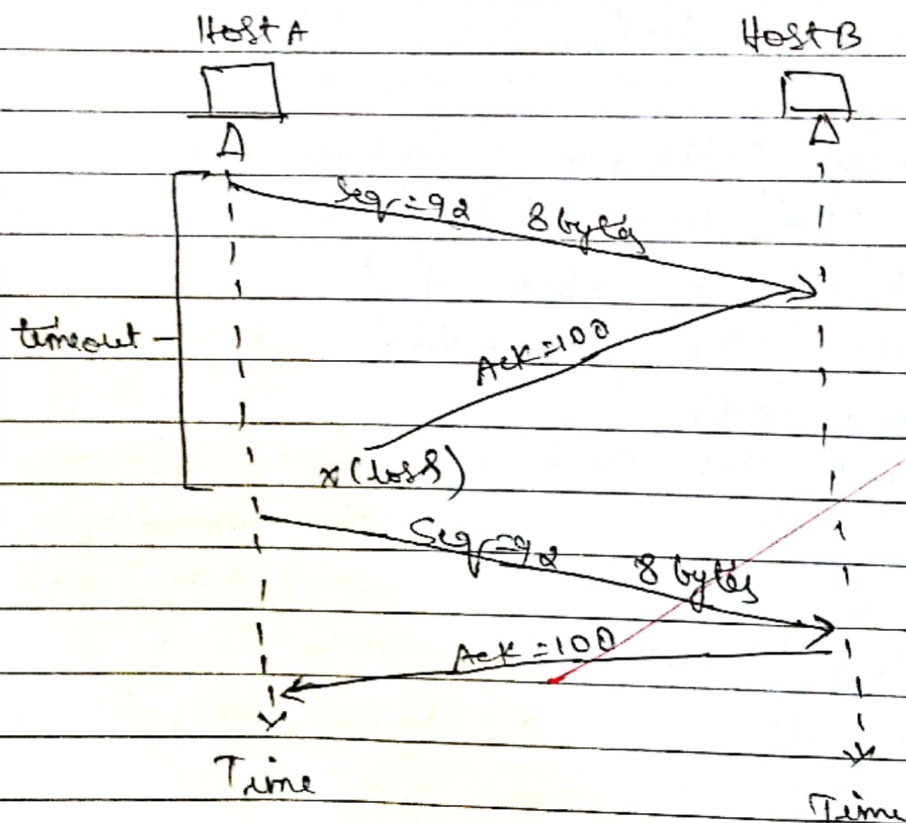 Host A Host B
Seq=92 8 bytes
timeout
Ack=100
x(loss)
Seq=92 8 bytes
Ack=100
Time
Time